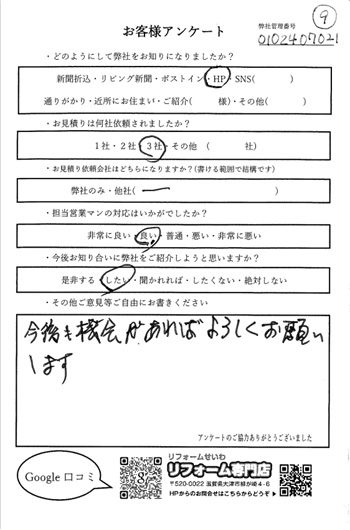 お客様アンケート
弊社管理番号
⑨
0102407021
・どのようにして弊社をお知りになりましたか？
新聞折込・リビング新聞・ポストイン・HP・SNS( )
通りがかり・近所にお住まい・ご紹介( 様)・その他( )
・お見積りは何社依頼されましたか？
1社・2社・3社・その他 ( 社)
・お見積り依頼会社はどちらになりますか？(書ける範囲で結構です)
弊社のみ・他社( ー )
・担当営業マンの対応はいかがでしたか？
非常に良い・良い・普通・悪い・非常に悪い
・今後お知り合いに弊社をご紹介しようと思いますか？
是非する・したい・聞かれれば・したくない・絶対しない
・その他ご意見等ご自由にお書きください
今後も機会があればよろしくお願い
します
アンケートのご協力ありがとうございました
Google 口コミ
リフォームせいわ
リフォーム専門店
〒520-0022 滋賀県大津市柳が崎4-6
HPからのお問合せはこちらからどうぞ